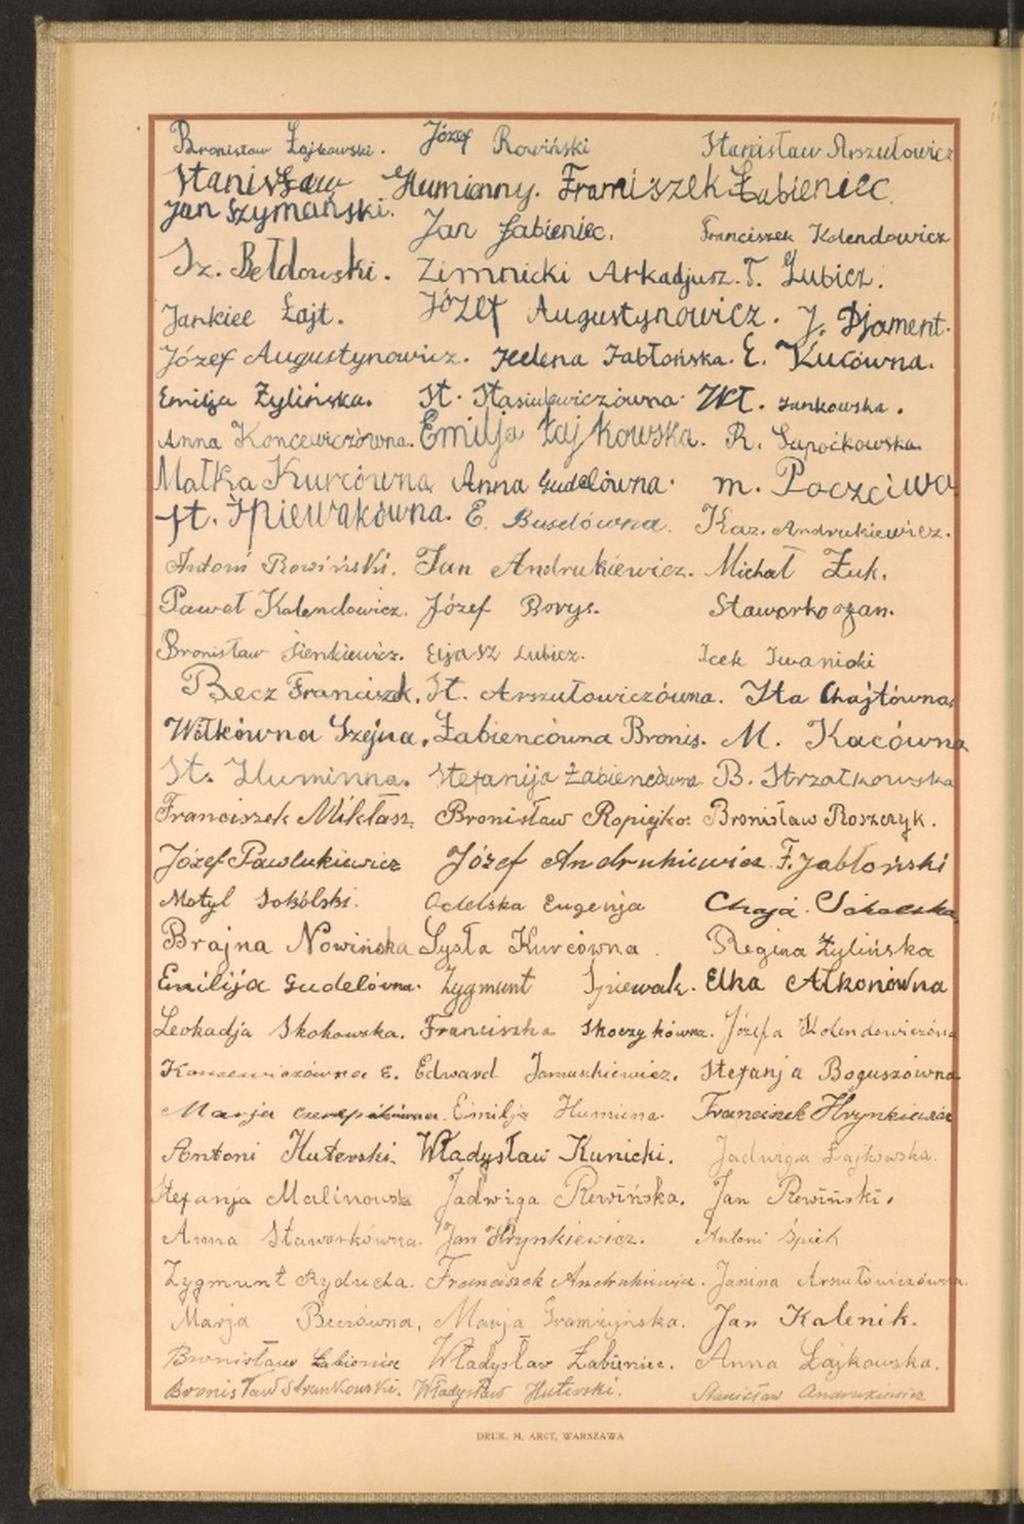 Bronisław Łajkowski. Józef Rowiński Stanisław Arszułowicz
Stanisław Humianny. Franciszek Łabieniec.
Jan Szymański. Jan Łabieniec. Franciszek Kolendowicz
Sz. Bełdowski. Zimnicki Arkadjusz. T. Lubicz.
Jankiel Łajt. Józef Augustynowicz. J. Djament.
Józef Augustynowicz. Helena Jabłońska. E. Kucówna.
Emilja Żylińska. St. Wł. Jankowska.
Anna Koncewiczówna. Emilja Łajkowska. R.
Małka Kurcówna Anna Gudelówna. M. Poczciwa
St. Śpiewakówna. E. Kaz. Andrukiewicz.
Antoni Rowiński. Jan Andrukiewicz. Michał Żuk.
Paweł Kolendowicz. Józef Borys. Staworko
Bronisław Sienkiewicz. Eljasz Lubicz. Icek Iwanicki
Becz Franciszek. St. Arszułowiczówna. Ita Chajtówna
Wilkówna Szejna. Łabiencówna Bronis. M. Kacówna
St. Huminna. Stefanija Łabiencówna B. Strzałkowska
Franciszek Mikłasz. Bronisław Ropiejko. Bronisław Roszczyk.
Józef Pawlukiewicz Józef Andrukiewicz F. Jabłoński
Motyl Sokólski. Odelska Eugenja Chaja Sokolska
Brajna Nowińska Sysła Kurcówna. Regina Żylińska
Emilija Gudelówna. Zygmunt Śpiewak. Elka Ałkonówna
Leokadja Skokowska. Franciszka Skoczykówna. Józefa Kolendowiczówna
Koncewiczówna E. Edward Januszkiewicz. Stefanja Boguszówna
Marja Emilja Humiena. Franciszek Hrynkiewicz
Antoni Huterski. Władysław Kunicki. Jadwiga Łajkowska.
Stefanja Malinowska Jadwiga Rewińska. Jan Rewiński.
Anna Staworkówna. Jan Hrynkiewicz. Antoni Śpiek
Zygmunt Ryducha. Franciszek Andrukiewicz. Janina Arszułowiczówna.
Marja Beczówna, Marja Jan Kalenik.
Bronisław Władysław Łabieniec. Anna Łajkowska.
Bronisław Władysław Huterski. Stanisław Andrukiewicz
DRUK. M. ARCT, WARSZAWA